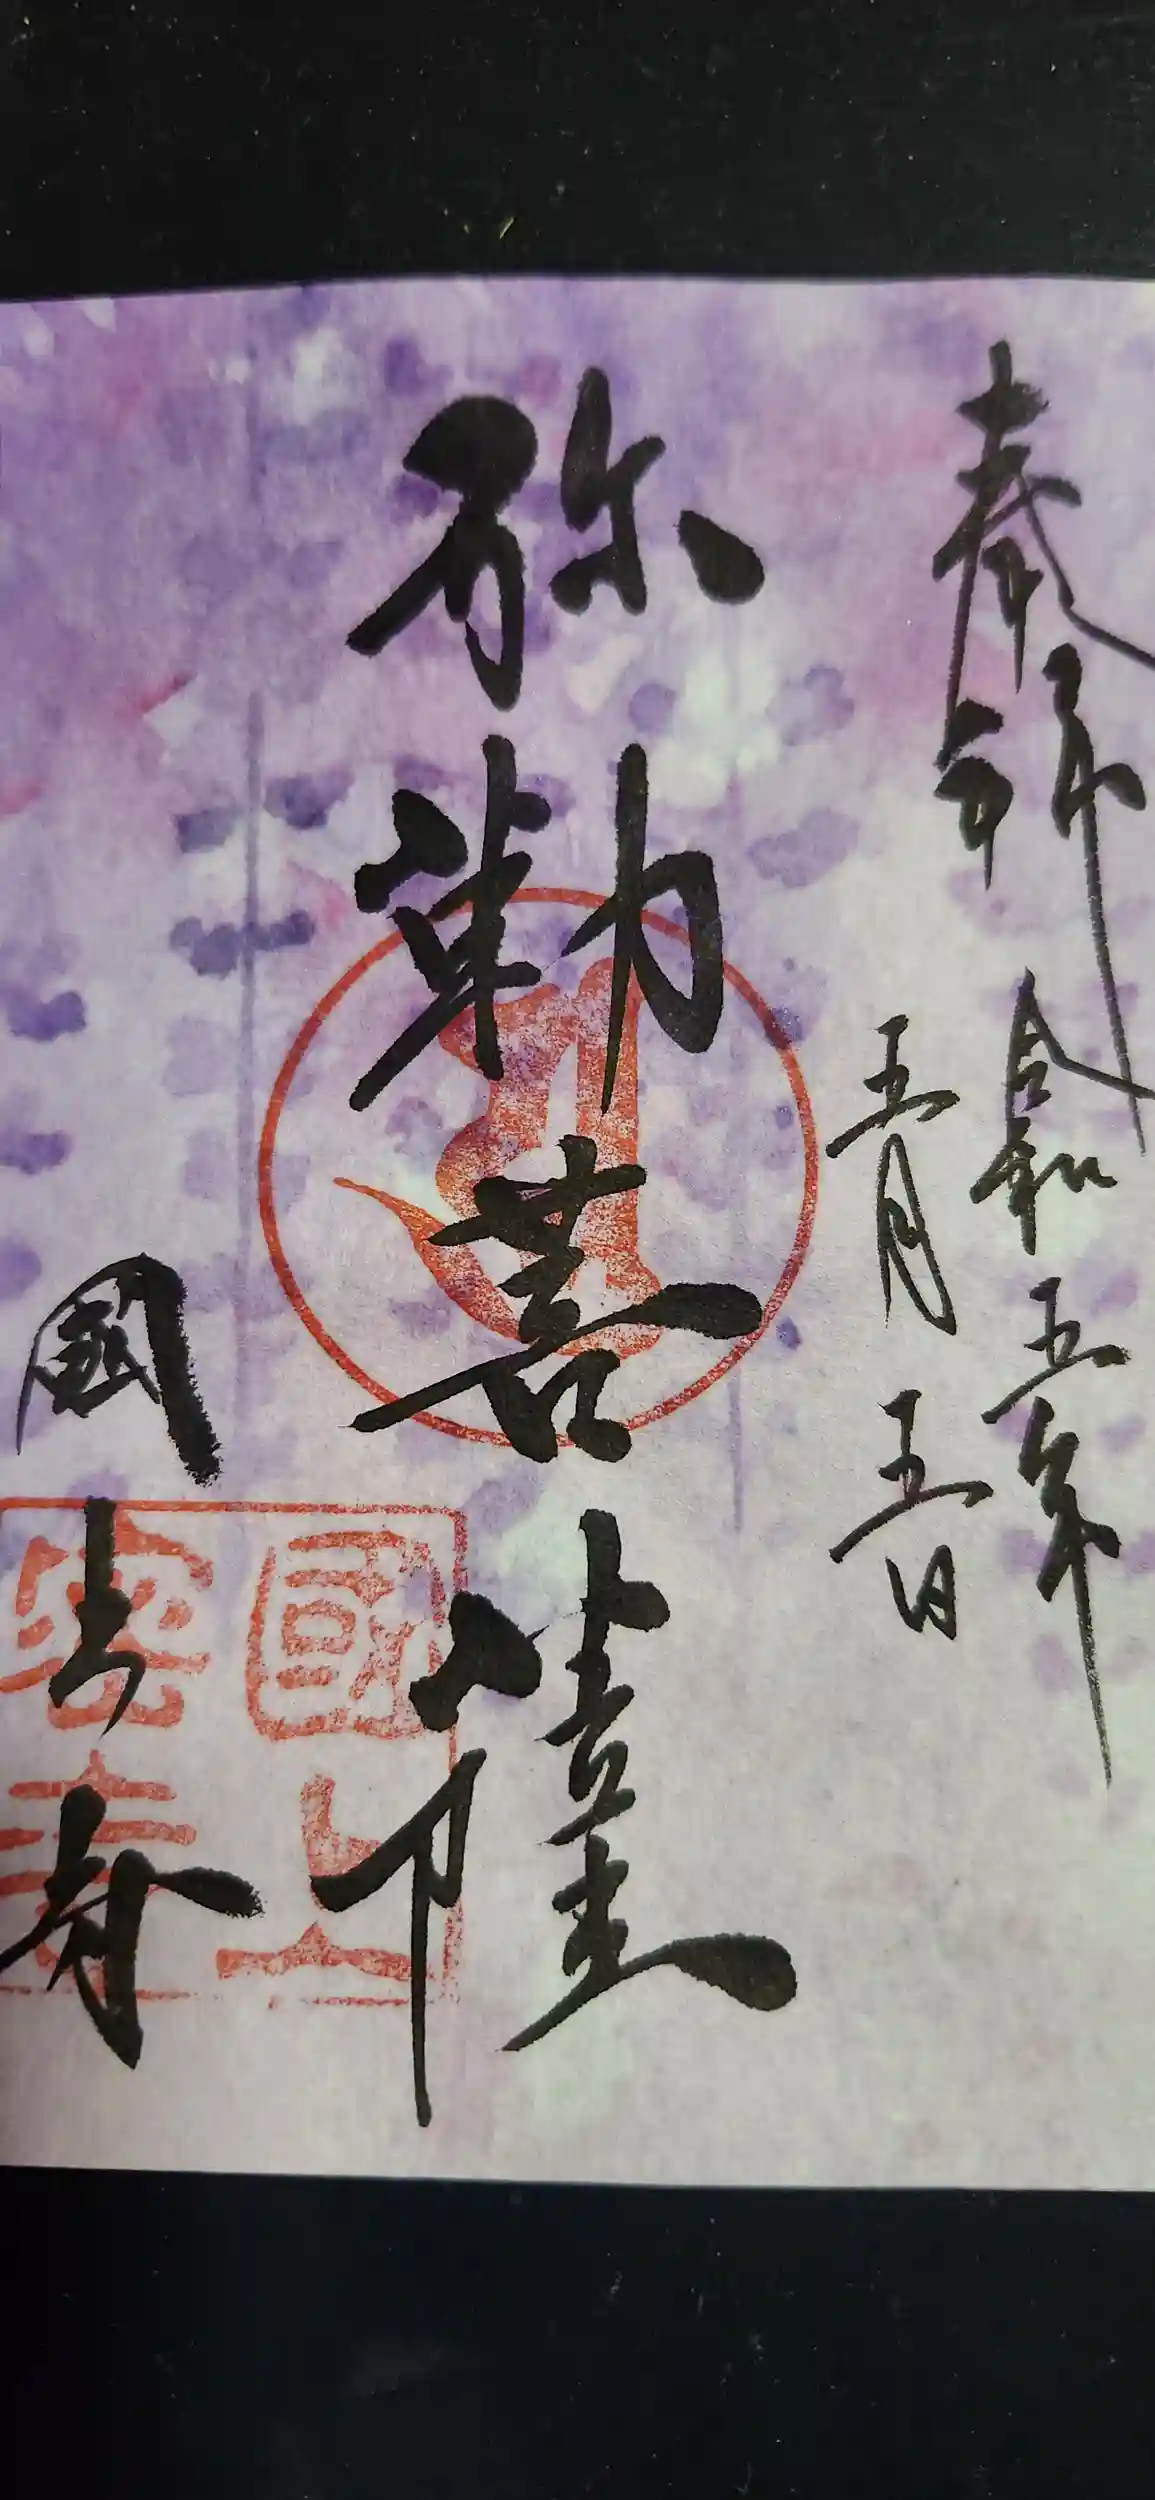 奉拝
令和五年
五月五日
弥勒菩薩
國上寺
國上